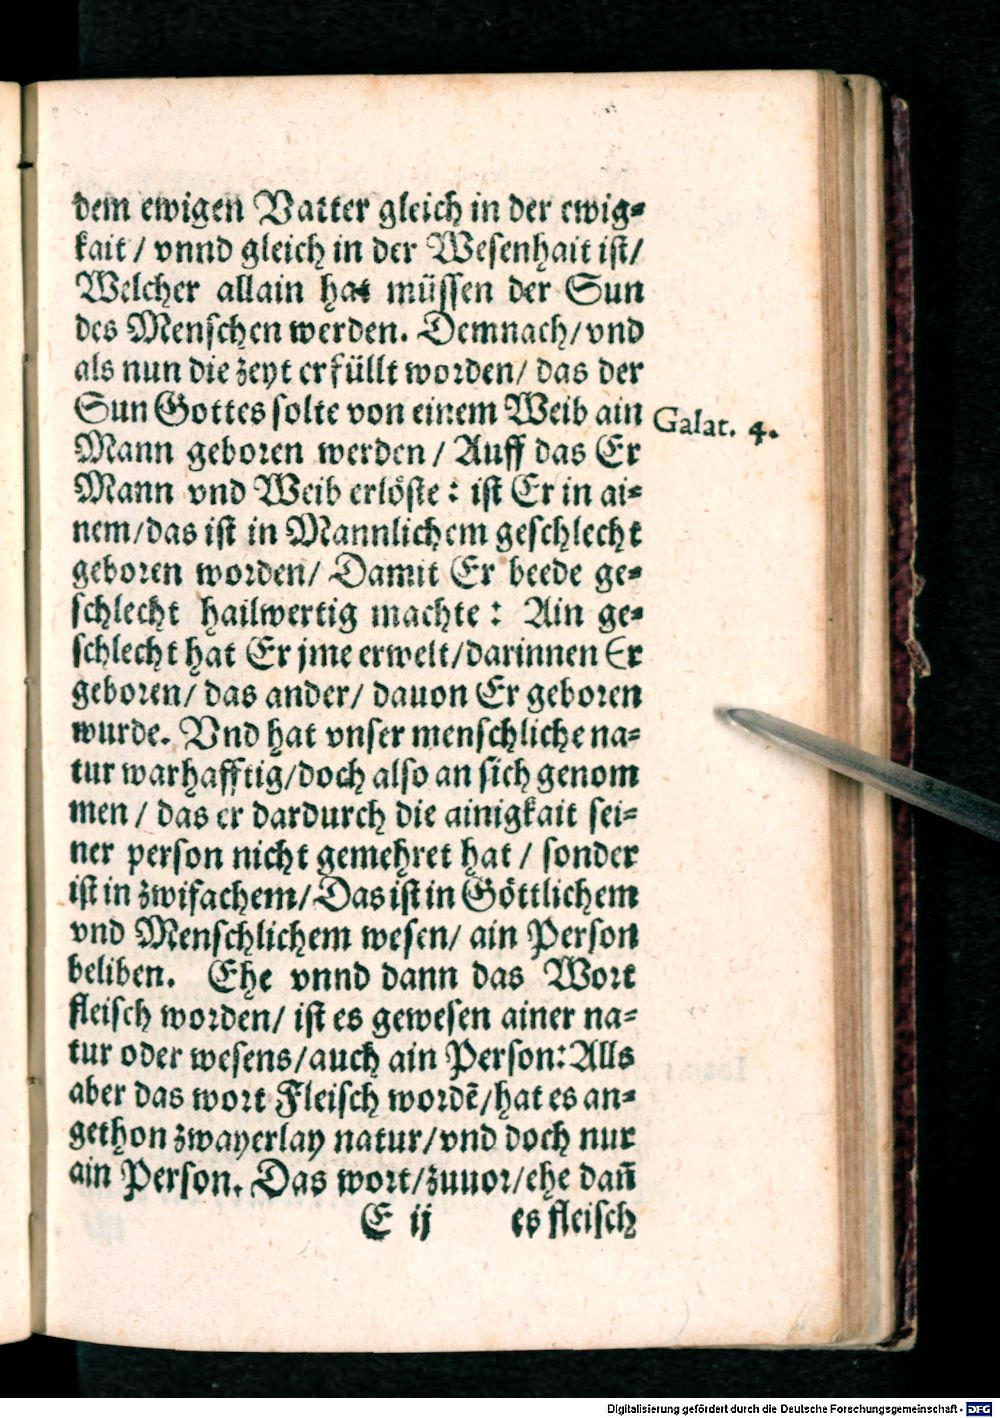 dem ewigen Vatter gleich in der ewig⸗
kait / vnnd gleich in der Wesenhait ist/
Welcher allain hat müssen der Sun
des Menschen werden. Demnach/ vnd
als nun die zeyt erfüllt worden/ das der
Sun Gottes solte von einem Weib ain
Galat. 4.
Mann geboren werden / Auff das Er
Mann vnd Weib erlöste : ist Er in ai⸗
nem/das ist in Mannlichem geschlecht
geboren worden/ Damit Er beede ge⸗
schlecht hailwertig machte : Ain ge⸗
schlecht hat Er jme erwelt/darinnen Er
geboren/ das ander/ dauon Er geboren
wurde. Vnd hat vnser menschliche na⸗
tur warhafftig/doch also an sich genom
men / das er dardurch die ainigkait sei⸗
ner person nicht gemehret hat / sonder
ist in zwifachem/Das ist in Göttlichem
vnd Menschlichem wesen/ ain Person
beliben. Ehe vnnd dann das Wort
fleisch worden/ ist es gewesen ainer na⸗
tur oder wesens/auch ain Person: Alls
aber das wort Fleisch wordẽ/hat es an⸗
gethon zwayerlay natur/vnd doch nur
ain Person. Das wort/zuuor/ehe dañ
E ij es fleisch
Digitalisierung gefördert durch die Deutsche Forschungsgemeinschaft - DFG